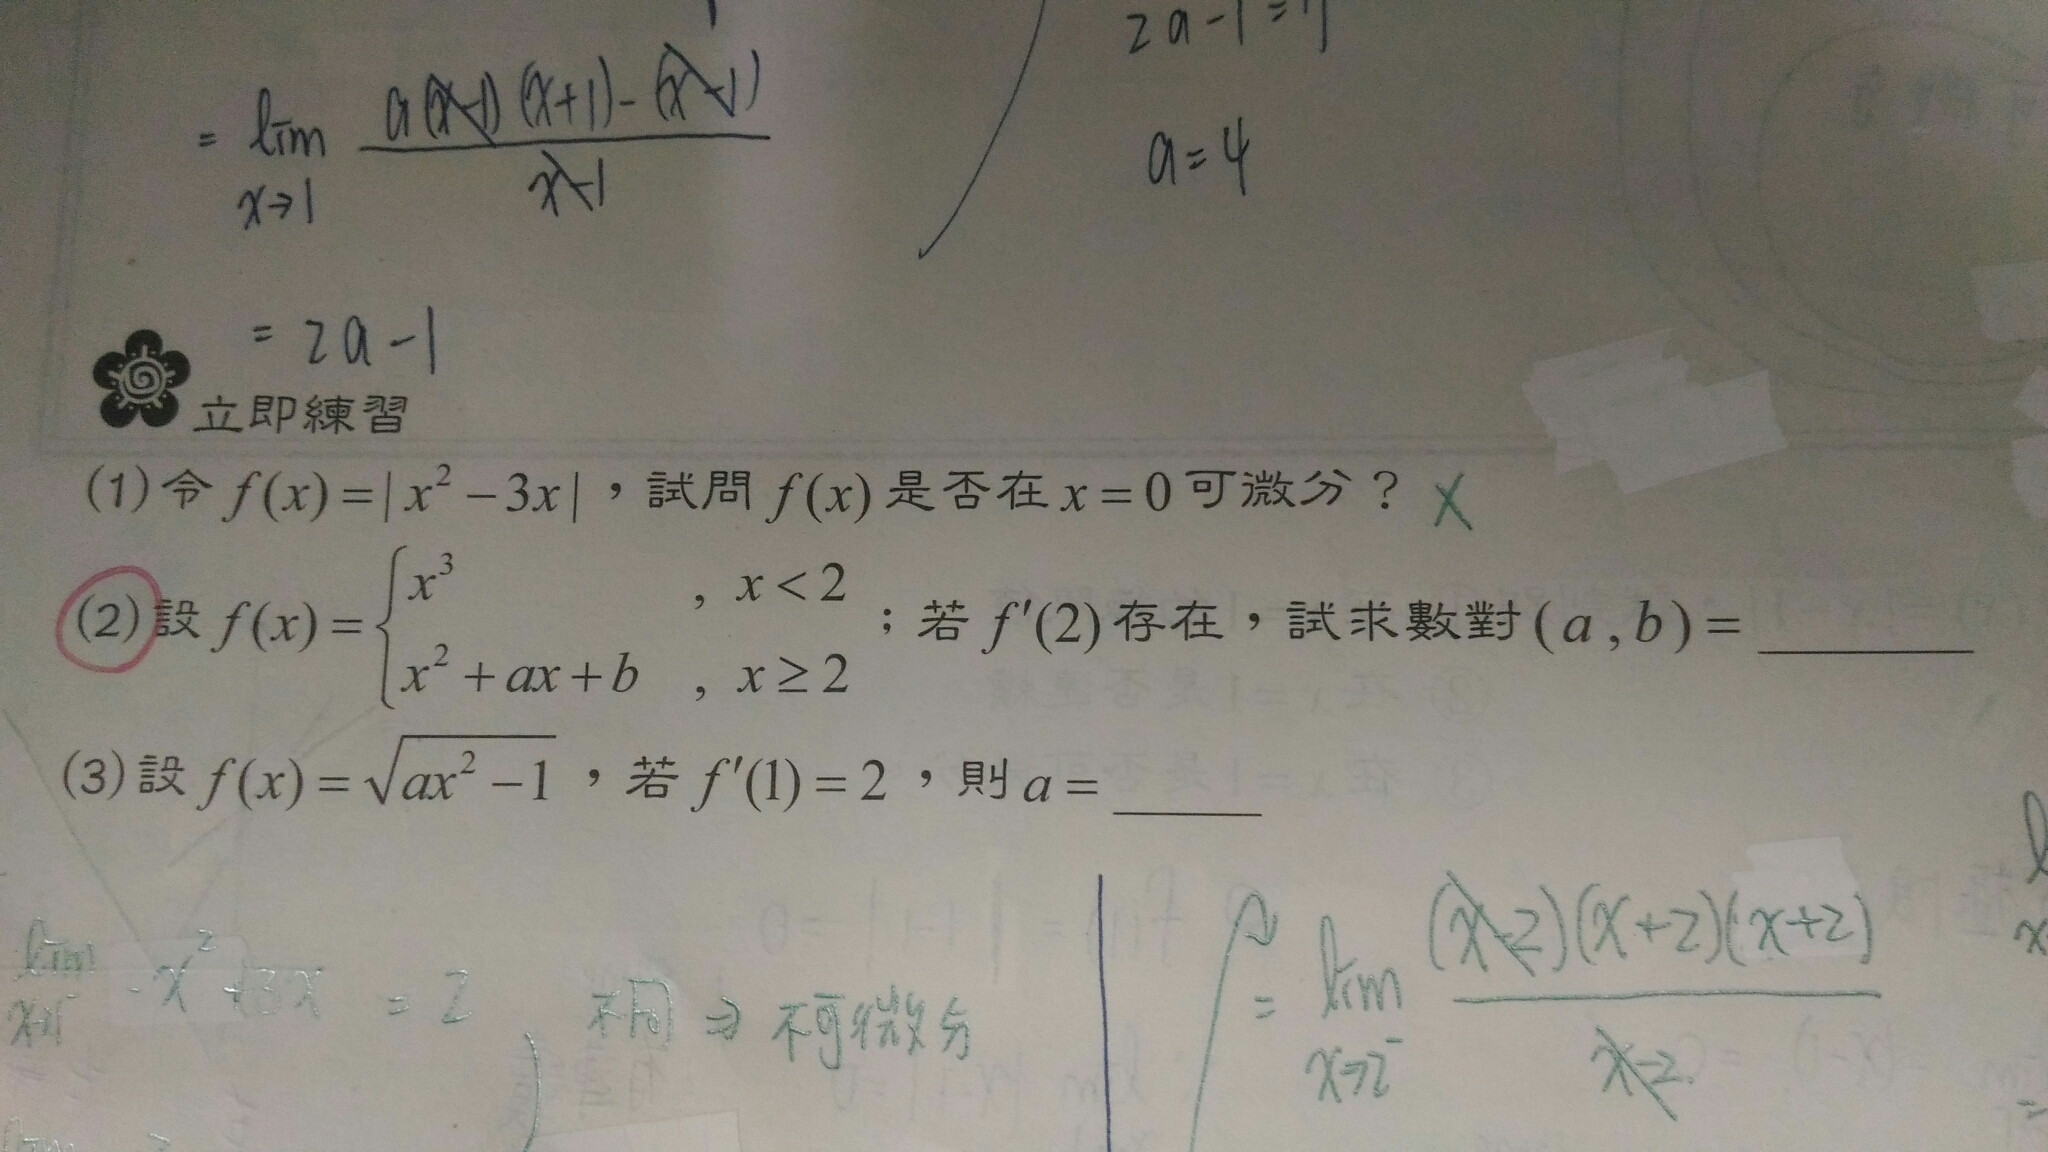 2a-1=7
= lim a(x-1)(x+1)-(x-1) / x-1
x→1
a=4
= 2a-1
立即練習
(1)令 f(x)=|x²-3x|,試問 f(x) 是否在 x=0 可微分? X
(2)設 f(x)={x³ , x<2
x²+ax+b , x≥2 ;若 f'(2) 存在,試求數對(a,b)=______
(3)設 f(x)=√(ax²-1),若 f'(1)=2,則 a=____
lim -x²+3x = 2 不同 ⇒ 不可微分
= lim (x-2)(x+2)(x+2) / x-2
x→2⁻